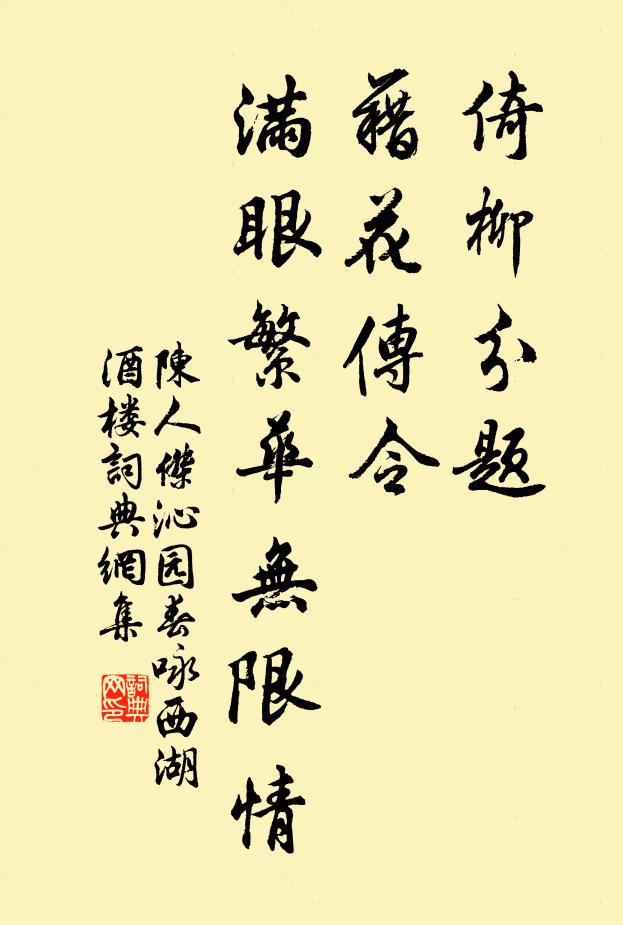 倚柳分題
藉花傳令
滿眼繁華無限情
陳人傑沁园春咏西湖
酒楼詞典網集
詞典
网印